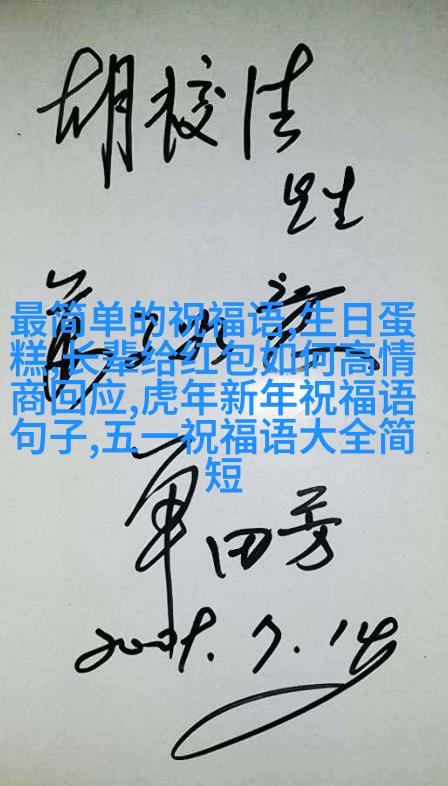 胡
先生
最简单的祝福语,生日蛋
糕,长辈给红包如何高情
商回应,虎年新年祝福语
句子,五一祝福语大全简
短
单田芳